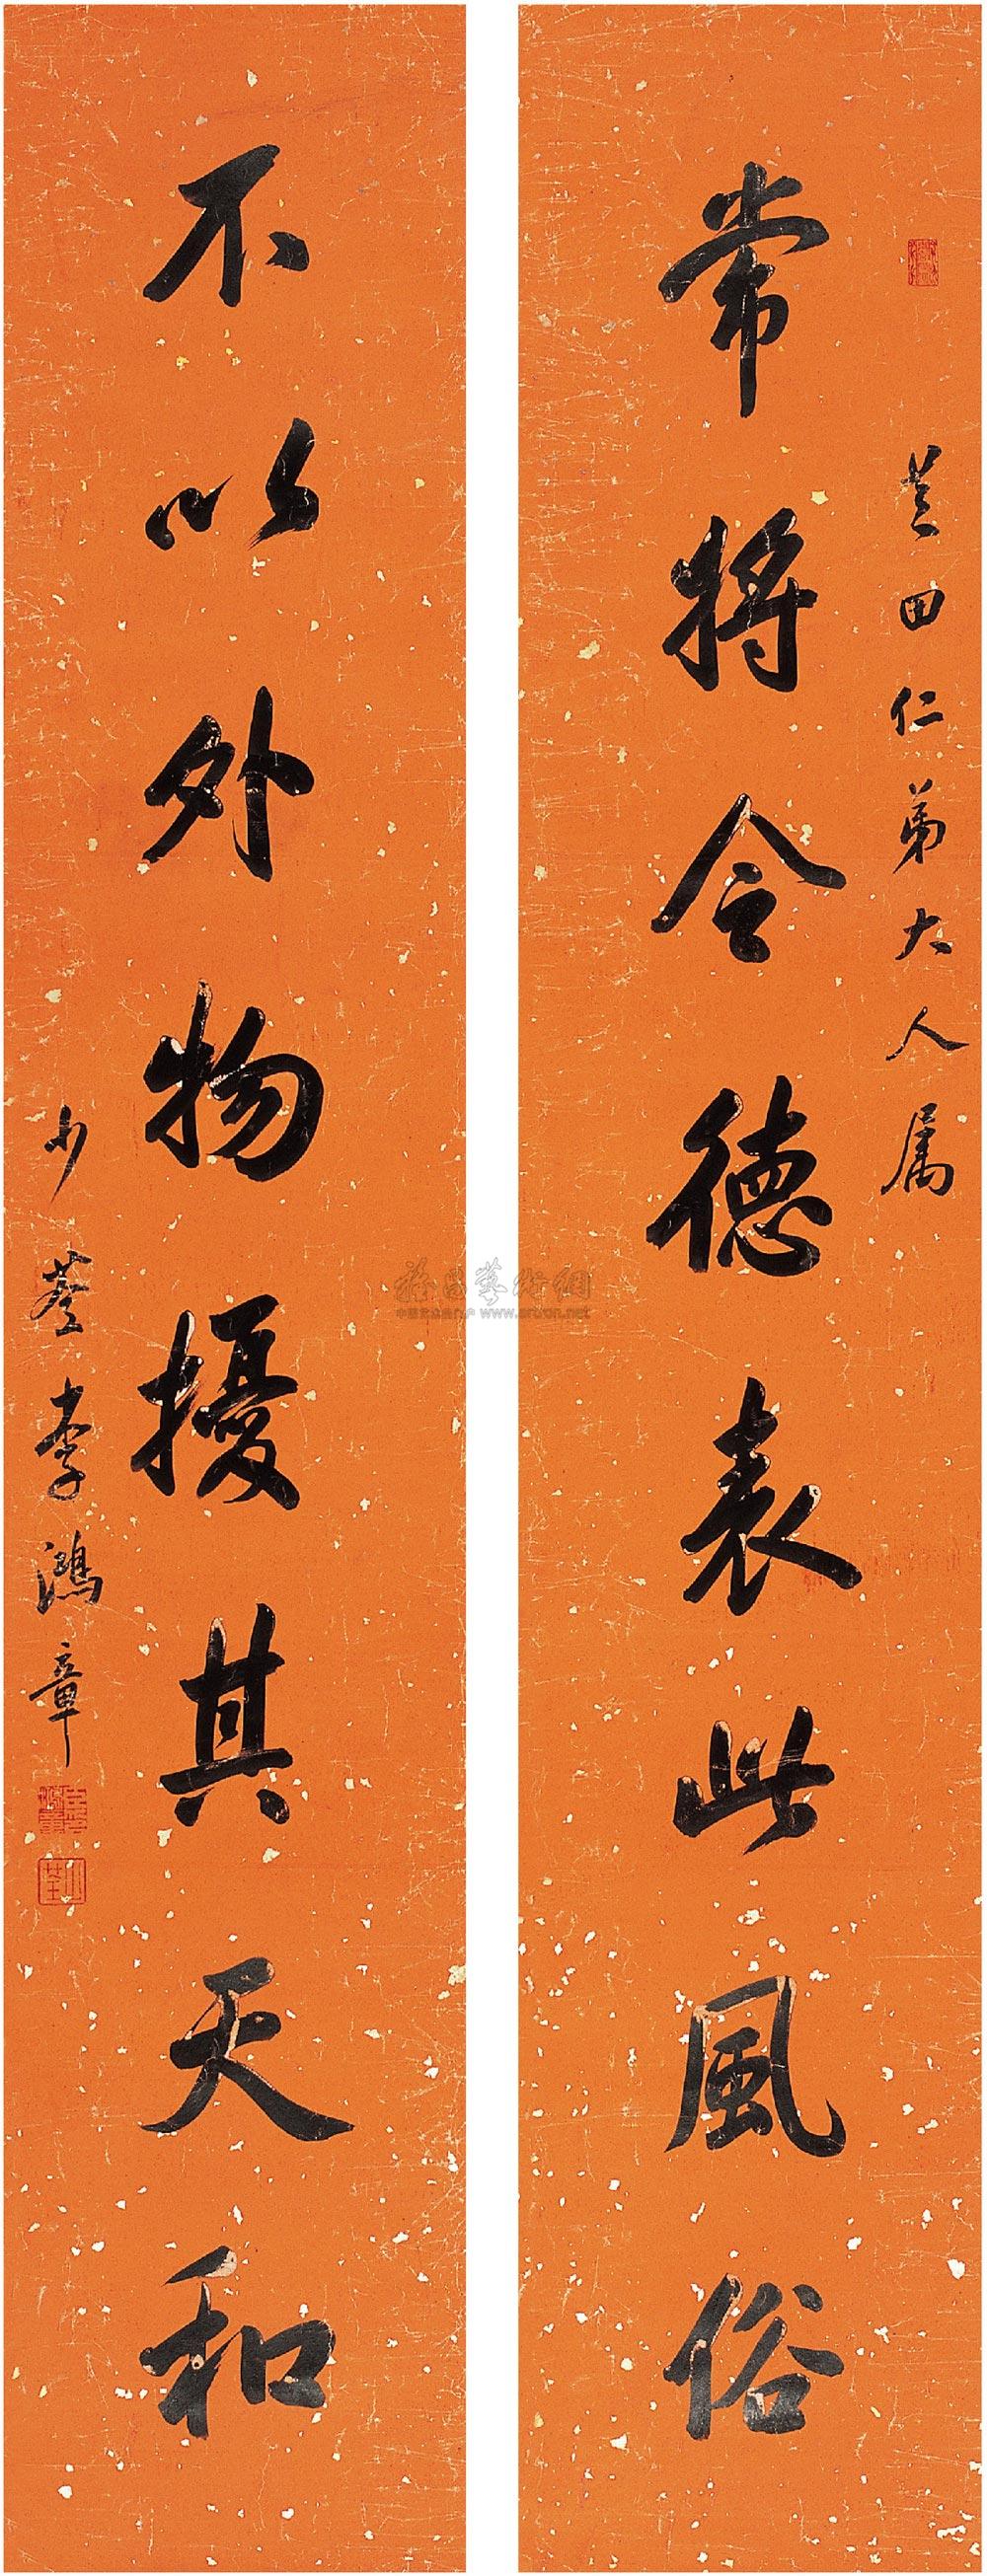 芝田仁弟大人属
常將令德表此風俗
不以外物擾其天和
少荃李鴻章
少荃
雅昌藝術網
www.artron.net